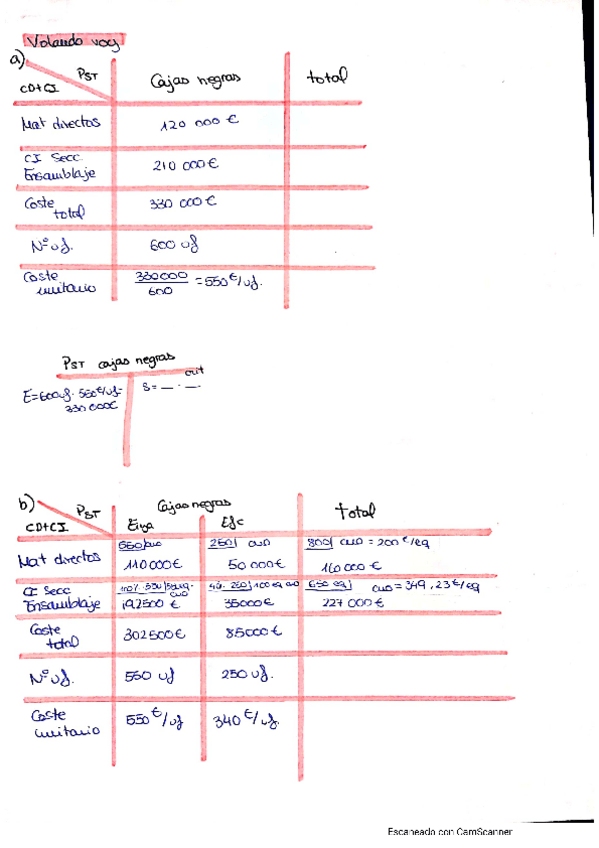 Volando voy
a)
PST
CD+CI
Cajas negras
total
Mat directos
120 000 €
CI Secc.
Ensamblaje
210 000 €
Coste total
330 000 €
Nº uf.
600 uf
Coste unitario
330000
600
= 550 €/uf.
PST cajas negras
E=600uf. 550€/uf=
330 000€
out
S = _ . _
b)
PST
CD+CI
Cajas negras
Total
EIya
Efc
Mat directos
550/
250/ CUD
800/ CUD = 200 €/eq
110 000€
50 000€
160 000 €
CI Secc
Ensamblaje
650 eq/ CUD = 349,23 €/eq
192500 €
35000 €
227 000 €
Coste total
302500 €
85000 €
Nº uf.
550 uf
250 uf.
Coste unitario
550 €/uf
340 €/uf.
Escaneado con CamScanner